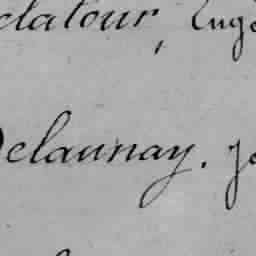 elatour, Eug
Delaunay. J